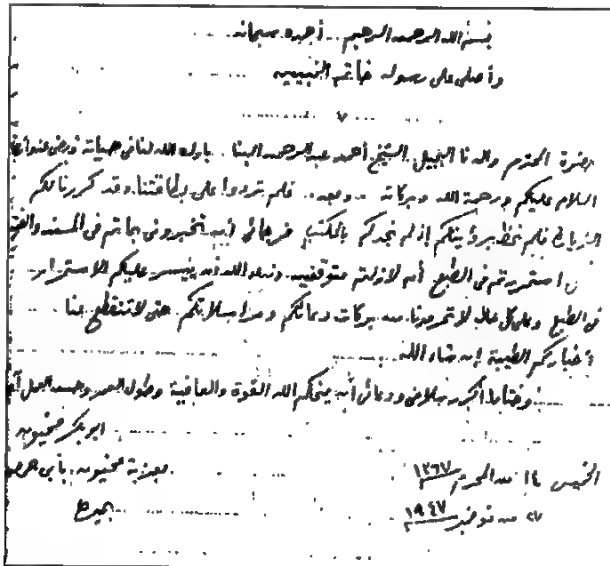 بسم الله الرحمن الرحيم .. أحمده سبحانه
وأصلى على رسوله خاتم النبيين
حضرة المحترم والدنا الجليل الشيخ أحمد عبد الرحمن البنا . بارك الله لنا فى حياته ورضى عنه
السلام عليكم ورحمة الله وبركاته .. وبعد .. فلم تردوا على بطاقتنا وقد كررنا لكم
الزيارة فلم نحظ برؤيتكم إذ لم نجدكم بالمكتب فرجائى أن تخبرونى بما تم فى المسند والفتح
استمررتم فى الطبع أم لازلتم متوقفين . وندعو الله أن ييسر عليكم الاستمرار
فى الطبع وعلى كل حال لا تحرمونا من بركات دعائكم ومراسلاتكم حتى لا تنقطع عنا
أخباركم الطيبة إن شاء الله .
وختاما أكرر سلامى ودعائى أن يمنحكم الله القوة والعافية وطول العمر وحسن العمل
ابو بكر مخيون
الخميس ١٤ من المحرم ١٣٦٧ بعزبة مخيون . بأبى حمص
من نوفمبر ١٩٤٧ بحيرة